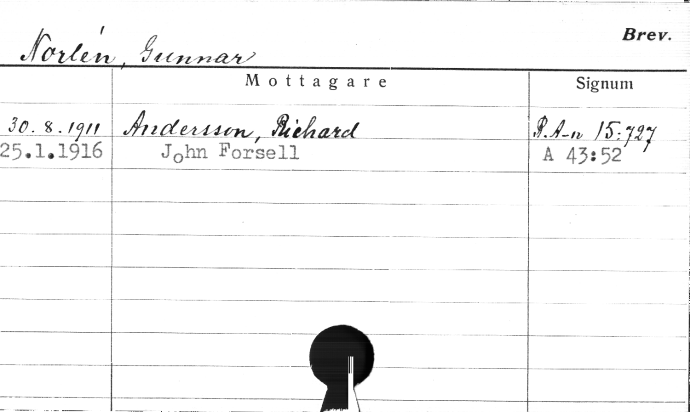 Brev.
Norlén, Gunnar
Mottagare Signum
30.8.1911 Andersson, Richard R.A-n 15:727
25.1.1916 John Forsell A 43:52